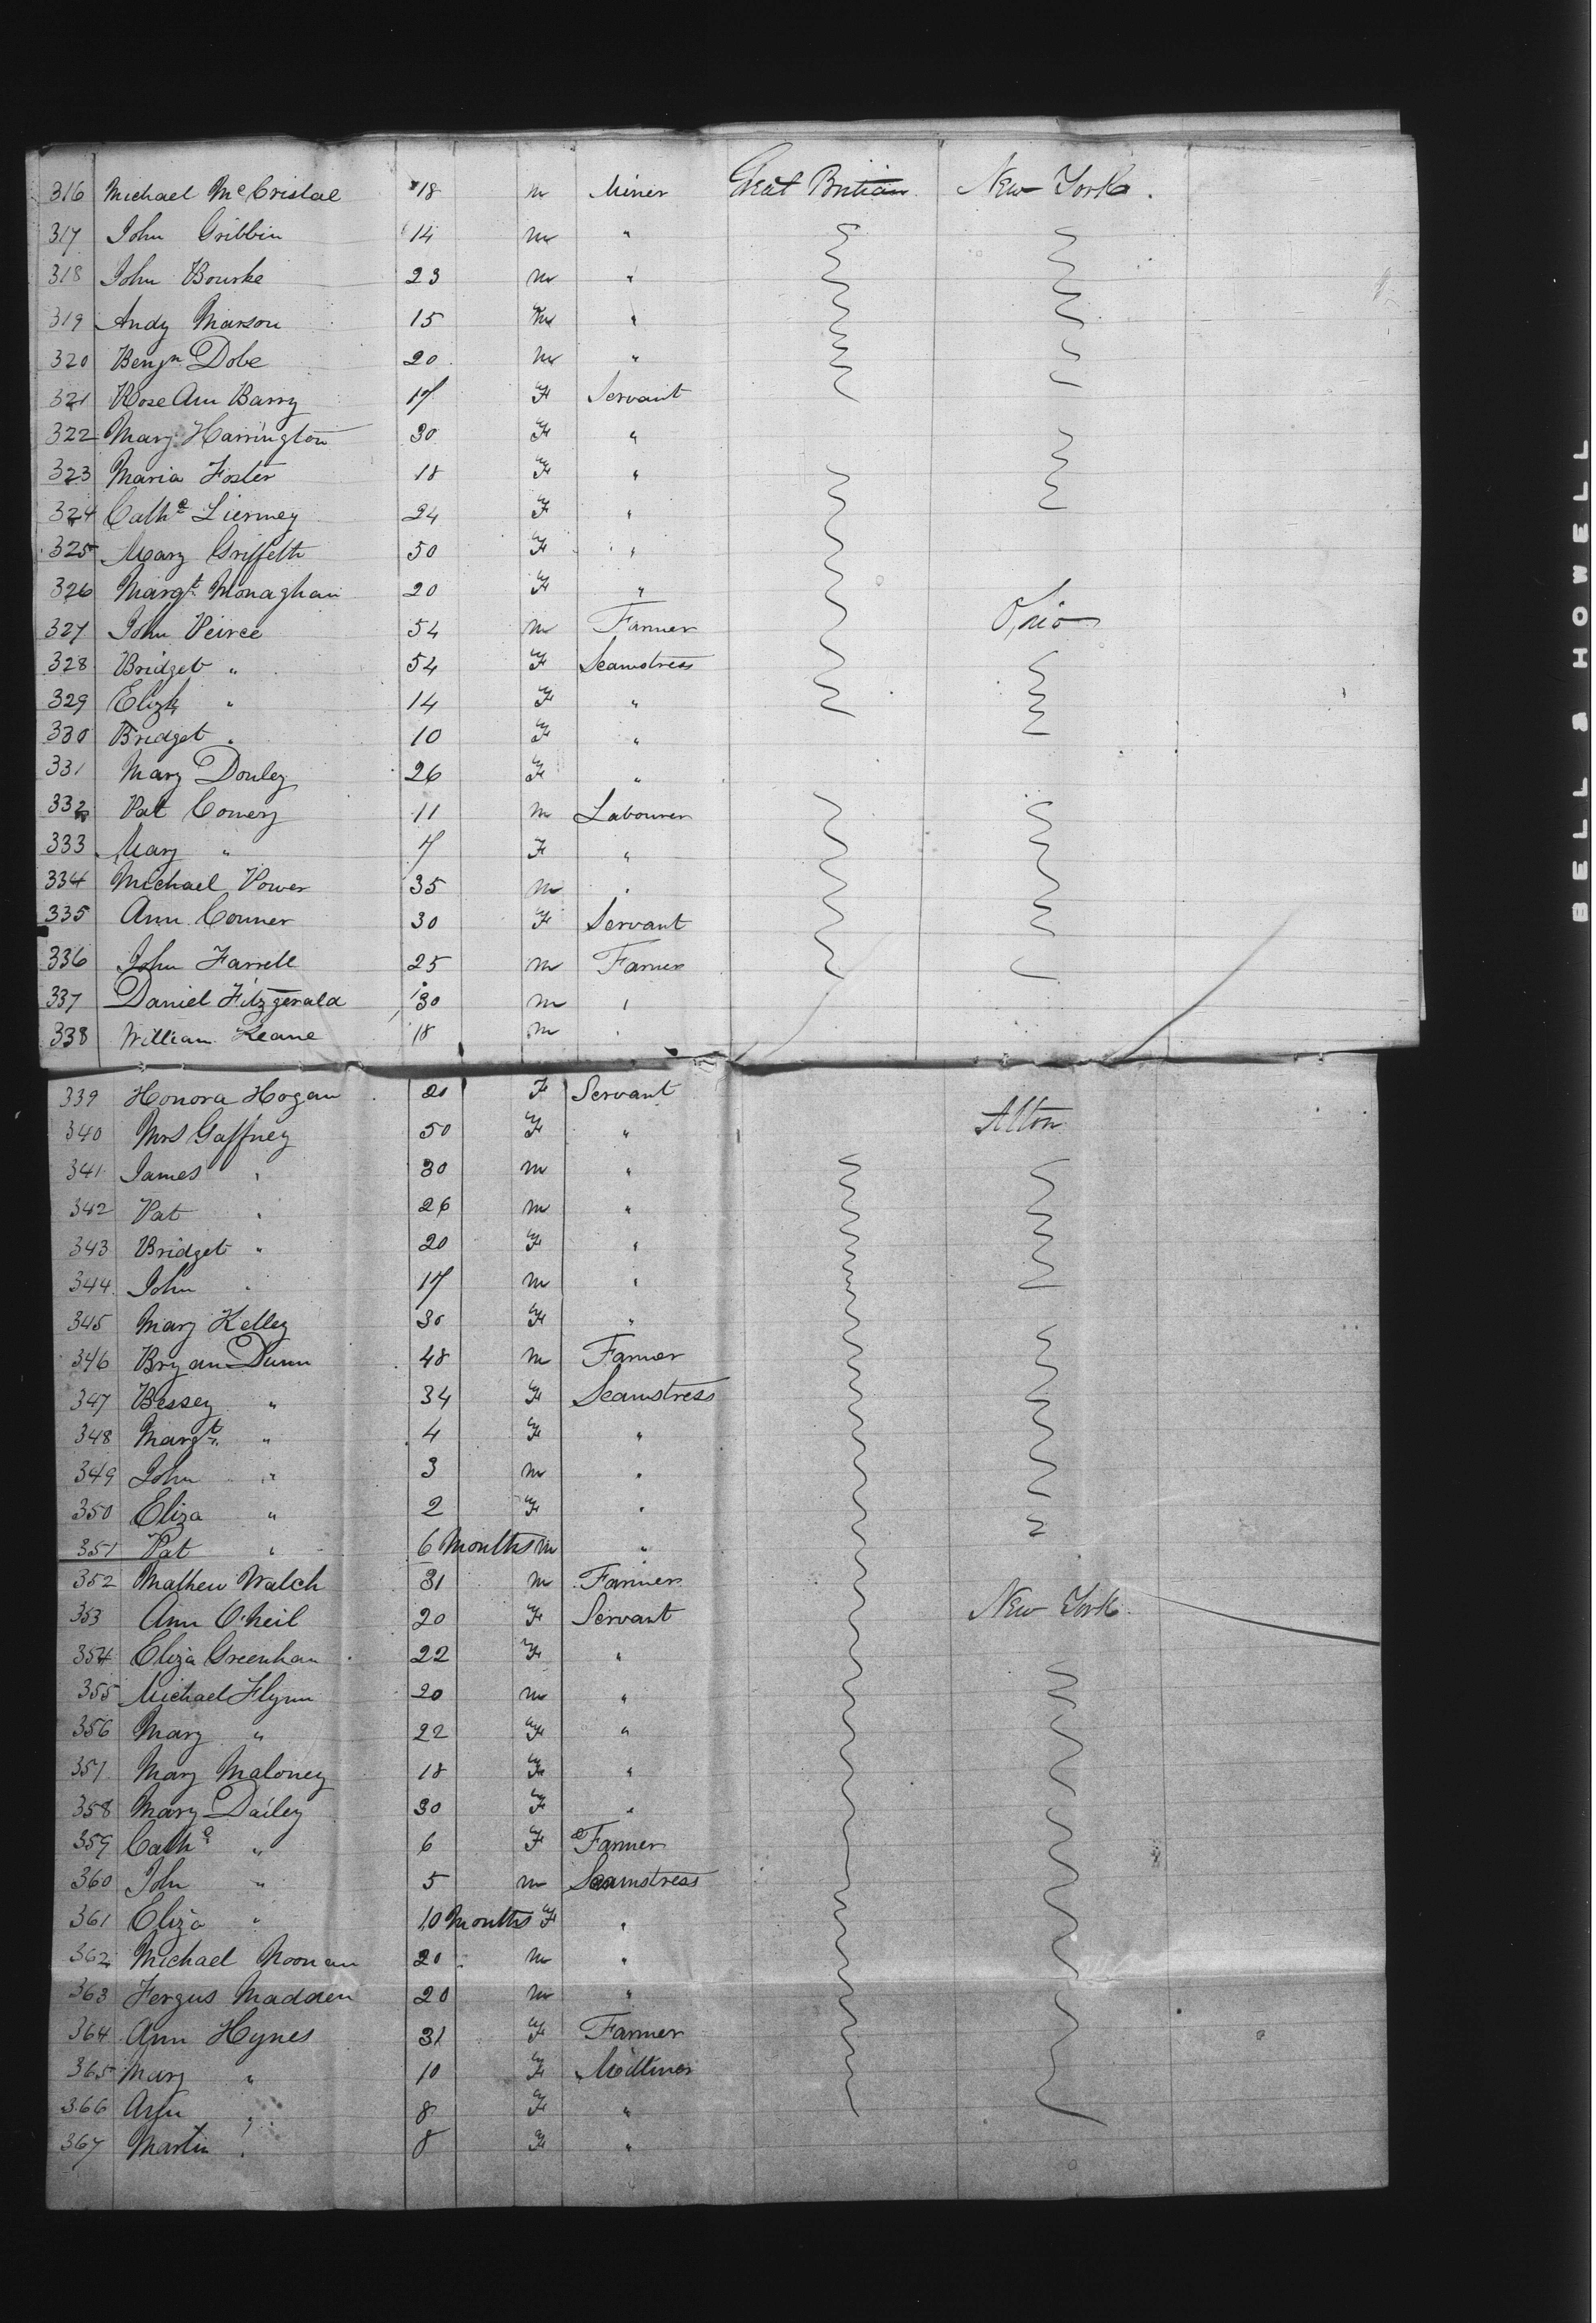 316 Michael McCristal 18 m Miner Great Britian New York.
317 John Gribbin 14 m "
318 John Bourke 23 m "
319 Andy Marson 15 m "
320 Benjn Dobe 20 m "
321 Rose Ann Barry 17 F Servant
322 Mary Harrington 30 F "
323 Maria Foster 18 F "
324 Cathe Liermey 24 F "
325 Mary Griffeth 50 F "
326 Margt Monaghan 20 F "
327 John Peirce 54 m Farmer Ohio
328 Bridget " 54 F Seamstress
329 Elizh " 14 F "
330 Bridget " 10 F "
331 Mary Donley 26 F "
332 Pat Comery 11 m Labourer
333 Mary " 7 F "
334 Michael Power 35 m "
335 Ann Conner 30 F Servant
336 John Farrell 25 m Farmer
337 Daniel Fitzgerald 30 m "
338 William Keane 18 m "
339 Honora Hogan 21 F Servant
340 Mrs Gaffney 50 F " Alton
341 James " 30 m "
342 Pat " 26 m "
343 Bridget " 20 F "
344 John " 17 m "
345 Mary Kelley 30 F "
346 Bryan Dunn 48 m Farmer
347 Bessey " 34 F Seamstress
348 Margt " 4 F "
349 John " 3 m "
350 Eliza " 2 F "
351 Pat " 6 Months m "
352 Mathew Walch 31 m Farmer
353 Ann O'Neil 20 F Servant New York.
354 Eliza Greenhan 22 F "
355 Michael Flynn 20 m "
356 Mary " 22 F "
357 Mary Maloney 18 F "
358 Mary Dailey 30 F "
359 Cathe " 6 F Farmer
360 John " 5 m Seamstress
361 Eliza " 10 Months F "
362 Michael Noonan 20 m "
363 Fergus Madden 20 m "
364 Ann Hynes 31 F Farmer
365 Mary " 10 F
366 Ann " 8 F "
367 Martin " 8 F "
BELL & HOWELL